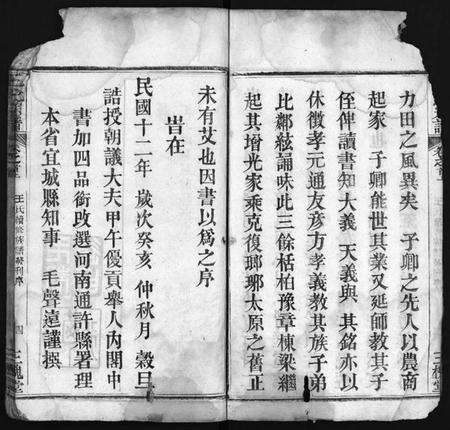 力田之風異矣 子卿之先人以農商
起家 子卿能世其業又延師教其子
侄俾讀書知大義 天義與 其銘亦以
休徵孝元通友彥方孝義教其族子弟
比鄰絃誦味此三餘栝柏豫章棟梁繼
起其增光家乘克復瑯琊太原之舊正
未有艾也因書以為之序
旹在
民國十二年 歲次癸亥 仲秋月 穀旦
誥授朝議大夫甲午優貢舉人內閣中
書加四品銜改選河南通許縣署理
本省宜城縣知事 毛聲遠謹撰
王氏續修族譜
四
三槐堂